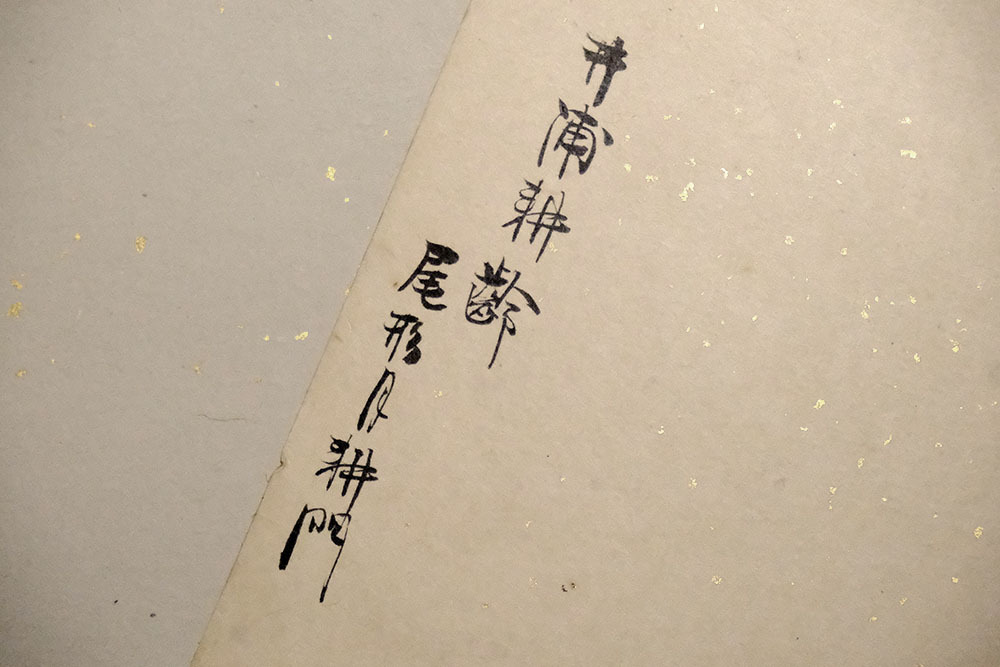 井浦耕齢
尾形月耕門